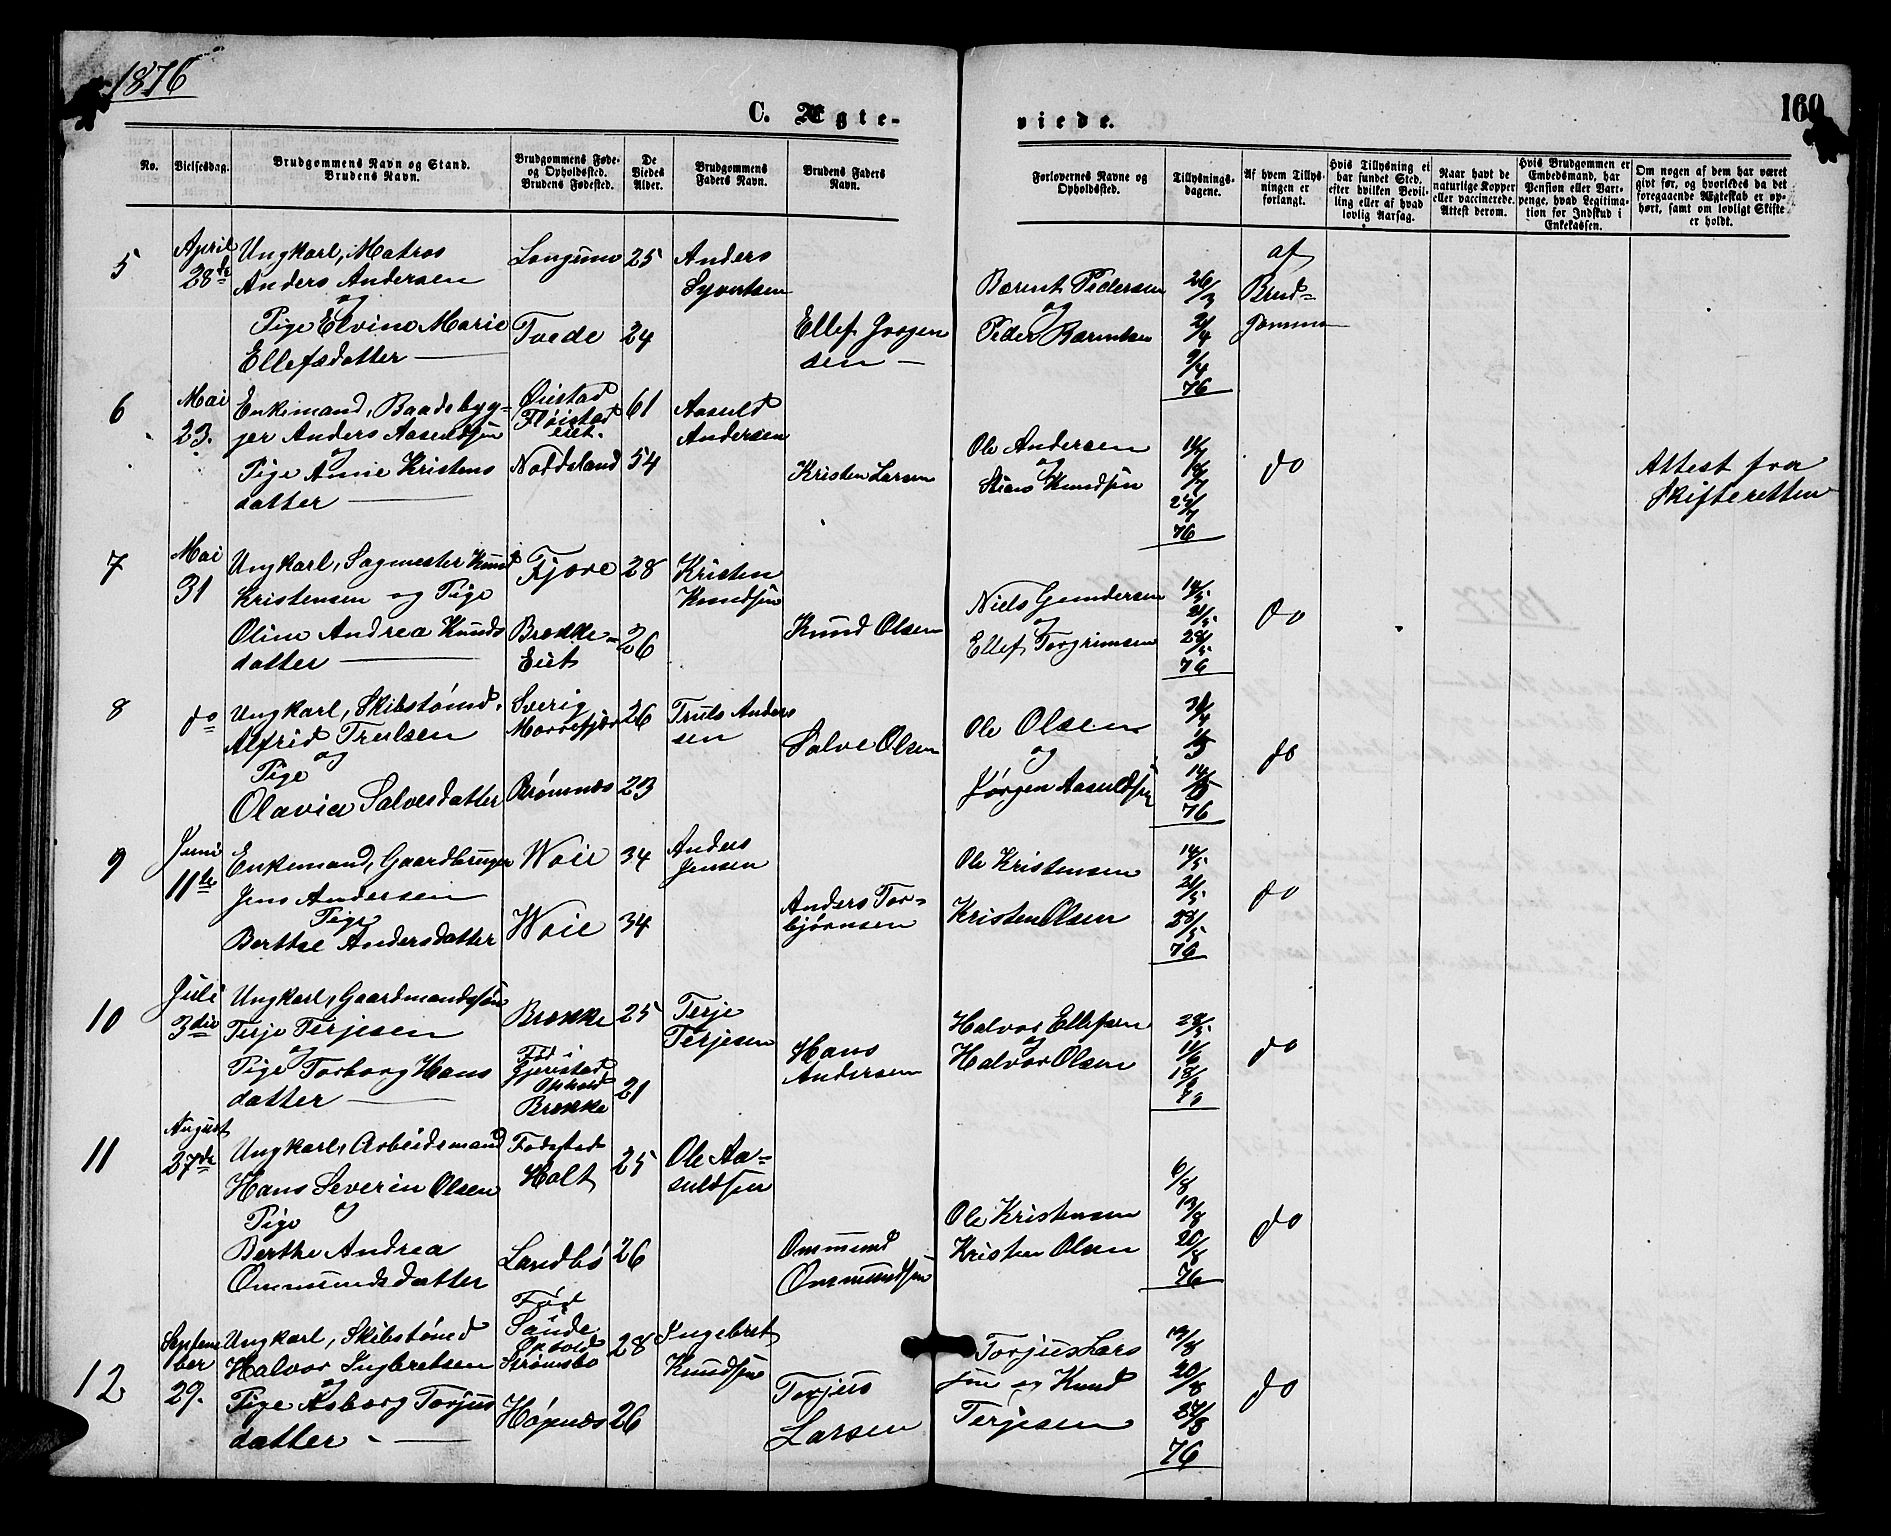 1876
160
C. Ægte-
viede.
No.
Vielsesdag.
Brudgommens Navn og Stand.
Brudens Navn.
Brudgommens Føde-
og Opholdssted.
Brudens Fødested.
De
Viedes
Alder.
Brudgommens
Faders Navn.
Brudens Faders
Navn.
Forlovernes Navne og
Opholdssted.
Tillysnings-
dagene.
Af hvem Tillys-
ningen er
forlangt.
Hvis Tillysning ei
har fundet Sted,
efter hvilken Bevil-
ling eller af hvad
lovlig Aarsag.
Naar havt de
naturlige Kopper
eller vaccinerede.
Attest derom.
Hvis Brudgommen er
Embedsmand, har
Pension eller Vart-
penge, hvad Legitima-
tion for Indskud i
Enkekassen.
Om nogen af dem har været
givt før, og hvorledes da det
foregaaende Ægteskab er op-
hørt, samt om lovligt Skifte
er holdt.
5
April
28de
Ungkarl, Matros
Anders Andersen
og
Pige Elvine Marie
Ellefsdatter
Longum
Tvede
25
24
Anders
Syvertsen
Ellef Jorgen
sen
Barent Pedersen
og
Peder Barentsen
26/3
2/4
9/4
76
af
Brud=
gommen
6
Mai
23.
Enkemand, Baadsbyg=
jer Anders Aasuldsen
og
Pige Anne Kristens
datter
Øiestad
Fløistad
eiet.
Noddeland
61
54
Aasuld
Andersen
Kristen Larsen
Ole Andersen
og
Knudsen
76
do
Attest fra
Skifteretten
7
Mai
31
Ungkarl, Sagmester Knud
Kristensen og Pige
Oline Andrea Knuds
datter
Fjære
Brække=
Eiet
28
26
Kristen
Knudsen
Knud Olsen
Niels Gundersen
og
Ellef Torgrimsen
14/5
21/5
28/5
76
do
8
do
Ungkarl, Skibstømd.
Alfrid Trulsen
og
Pige
Olavia Salvesdatter
Sverig
Morrefjær
Brømnæs
26
23
Truls Anders
sen
Salve Olsen
Ole Olsen
og
Jørgen Aasuldsen
76
do
9
Juni
11te
Enkemand, Gaardbruger
Jens Andersen
Pige
Berthe Andersdatter
Woie
Woie
34
34
Anders
Jensen
Anders Tor=
bjørnsen
Ole Kristensen
Kristen Olsen
14/5
21/5
28/5
76
do
10
Juli
3die
Ungkarl, Gaardmandssøn
Terje Terjesen
og
Pige Torborg Hans
datter
Brække
Fød i
Gjerestad
Ophold
Brække
25
21
Terje
Terjesen
Hans
Andersen
Halvor Ellefsen
og
Halvor Olsen
28/5
11/6
18/6
do
11
August
27de
Ungkarl, Arbeidsmand
Hans Severin Olsen
og
Pige
Berthe Andrea
Ommundsdatter
Fødested
Holt
Landbø
25
26
Ole Aa=
suldsen
Ommund
Ommundsen
Ole Kristensen
Kristen Olsen
6/8
13/8
20/8
76
do
12
Septem
ber
29.
Ungkarl, Skibstømd
Halvor Ingbretsen
og
Pige Asborg Torjus
datter
Fød
Sønde
Ophold
Strømsbo
Høgnæs
28
26
Ingebret
Knudsen
Torjus
Larsen
Torjus Lars
sen og Knud
Terjesen
13/8
20/8
27/8
76
do